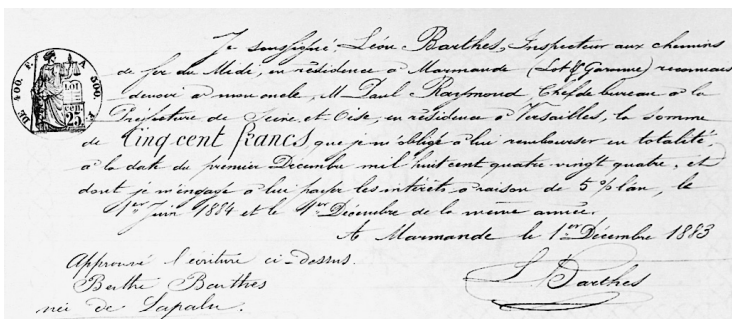 Je soussigné, Léon Barthes, Inspecteur aux chemins
de fer du Midi, en résidence à Marmande (Lot & Garonne) reconnais
devoir à mon oncle, M. Paul Raymond Chef de bureau à la
Préfecture de Seine et Oise, en résidence à Versailles, la somme
de Cinq cent francs, que je m'oblige à lui rembourser en totalité,
à la date du premier Décembre mil huit cent quatre vingt quatre, et
dont je m'engage à lui payer les intérêts à raison de 5 % l'an, le
1er Juin 1884 et le 1er Décembre de la même année.
A Marmande le 1er Décembre 1883
Approuvé l'écriture ci-dessus.
Berthe Barthes
née de Lapalu.
L Barthes
DE 400. F. A 500. F.
LOI
25